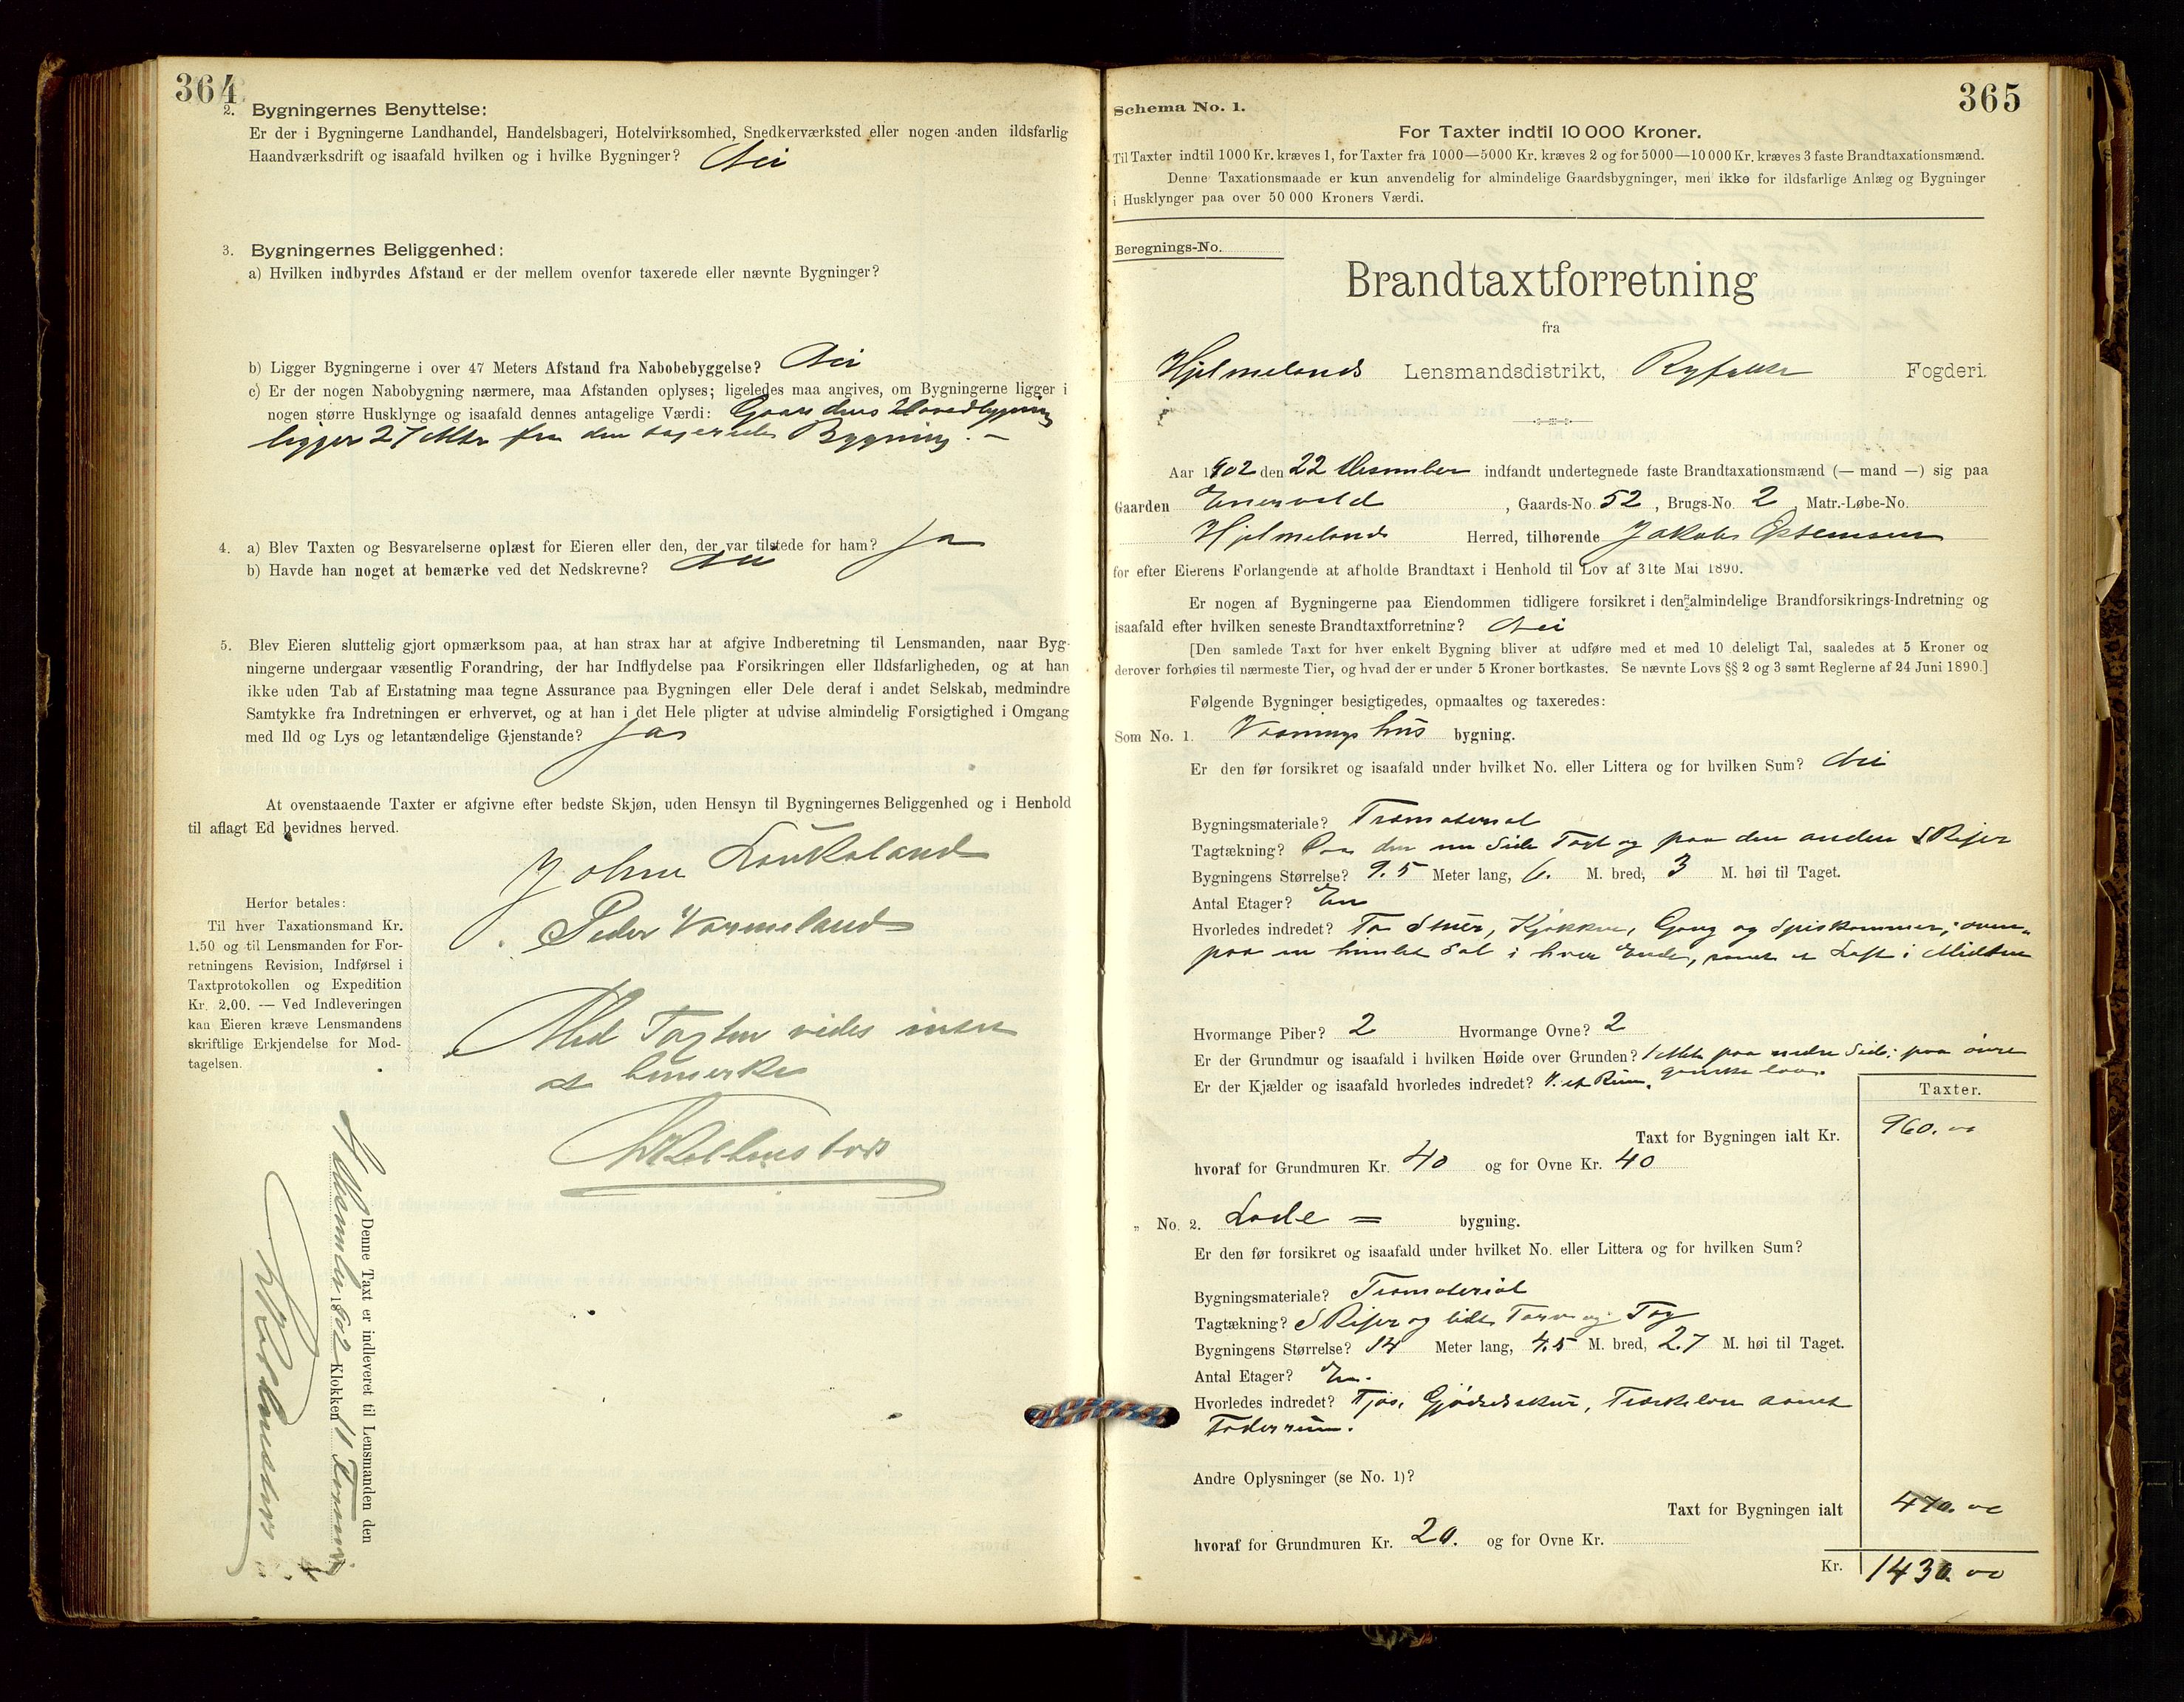 364
2. Bygningernes Benyttelse:
Er der i Bygningerne Landhandel, Handelsbageri, Hotelvirksomhed, Snedkerværksted eller nogen anden ildsfarlig
Haandværksdrift og isaafald hvilken og i hvilke Bygninger? Nei
3. Bygningernes Beliggenhed:
a) Hvilken indbyrdes Afstand er der mellem ovenfor taxerede eller nævnte Bygninger?
b) Ligger Bygningerne i over 47 Meters Afstand fra Nabobebyggelse? Nei
c) Er der nogen Nabobygning nærmere, maa Afstanden oplyses; ligeledes maa angives, om Bygningerne ligger i
nogen større Husklynge og isaafald dennes antagelige Værdi: Gaardens Hovedbygning
ligger 27 Mtr fra den taxerede Bygning. –
4. a) Blev Taxten og Besvarelserne oplæst for Eieren eller den, der var tilstede for ham? Ja
b) Havde han noget at bemærke ved det Nedskrevne? Nei
5. Blev Eieren sluttelig gjort opmærksom paa, at han strax har at afgive Indberetning til Lensmanden, naar Byg-
ningerne undergaar væsentlig Forandring, der har Indflydelse paa Forsikringen eller Ildsfarligheden, og at han
ikke uden Tab af Erstatning maa tegne Assurance paa Bygningen eller Dele deraf i andet Selskab, medmindre
Samtykke fra Indretningen er erhvervet, og at han i det Hele pligter at udvise almindelig Forsigtighed i Omgang
med Ild og Lys og letantændelige Gjenstande? Ja
At ovenstaaende Taxter er afgivne efter bedste Skjøn, uden Hensyn til Bygningernes Beliggenhed og i Henhold
til aflagt Ed bevidnes herved.
Peder Vormeland
Herfor betales:
Til hver Taxationsmand Kr.
1.50 og til Lensmanden for For-
retningens Revision, Indførsel i
Taxtprotokollen og Expedition
Kr. 2.00. — Ved Indleveringen
kan Eieren kræve Lensmandens
skriftlige Erkjendelse for Mod-
tagelsen.
Med Taxten vides intet
at bemerke
Denne Taxt er indleveret til Lensmanden den
Desember 1902 Klokken 11 Form
365
Schema No. 1.
For Taxter indtil 10 000 Kroner.
Til Taxter indtil 1000 Kr. kræves 1, for Taxter fra 1000—5000 Kr. kræves 2 og for 5000—10 000 Kr. kræves 3 faste Brandtaxationsmænd.
Denne Taxationsmaade er kun anvendelig for almindelige Gaardsbygninger, men ikke for ildsfarlige Anlæg og Bygninger
i Husklynger paa over 50 000 Kroners Værdi.
Beregnings-No.
Brandtaxtforretning
fra
Hjelmelands Lensmandsdistrikt, Ryfylke Fogderi.
Aar 1902 den 22 Desember indfandt undertegnede faste Brandtaxationsmænd (— mand —) sig paa
Gaarden , Gaards-No. 52, Brugs-No. 2 Matr.-Løbe-No.
Hjelmelands Herred, tilhørende Jakob
for efter Eierens Forlangende at afholde Brandtaxt i Henhold til Lov af 31te Mai 1890.
Er nogen af Bygningerne paa Eiendommen tidligere forsikret i den almindelige Brandforsikrings-Indretning og
isaafald efter hvilken seneste Brandtaxtforretning? Nei
[Den samlede Taxt for hver enkelt Bygning bliver at udføre med et med 10 deleligt Tal, saaledes at 5 Kroner og
derover forhøies til nærmeste Tier, og hvad der er under 5 Kroner bortkastes. Se nævnte Lovs §§ 2 og 3 samt Reglerne af 24 Juni 1890.]
Følgende Bygninger besigtigedes, opmaaltes og taxeredes:
Som No. 1. Vaaningshus bygning.
Er den før forsikret og isaafald under hvilket No. eller Littera og for hvilken Sum? Nei
Bygningsmateriale? Træmaterial
Tagtækning? Paa den ene Side Tagt og paa den anden Skifer
Bygningens Størrelse? 9.5 Meter lang, 6. M. bred, 3 M. høi til Taget.
Antal Etager? En
Hvorledes indredet? To Stuer, Kjøkken, Gang og Spiskammer; oven-
paa en himlet Sal i hver Ende, samt et Loft i Midten
Hvormange Piber? 2 Hvormange Ovne? 2
Er der Grundmur og isaafald i hvilken Høide over Grunden? 1 Mtr paa nedre Side; paa øvre
ganske lav.
Er der Kjælder og isaafald hvorledes indredet?
Taxter.
Taxt for Bygningen ialt Kr. 960.00
hvoraf for Grundmuren Kr. 40 og for Ovne Kr. 40
„ No. 2. Lade = bygning.
Er den før forsikret og isaafald under hvilket No. eller Littera og for hvilken Sum?
Bygningsmateriale? Træmaterial
Tagtækning? Skifer og lidt Torv og Tag
Bygningens Størrelse? 14 Meter lang, 4.5 M. bred, 2.7 M. høi til Taget.
Antal Etager? En.
Hvorledes indredet? Fjøs, Gjødselskur, Træskelove samt
Foderrum.
Andre Oplysninger (se No. 1)?
Taxt for Bygningen ialt 470.00
hvoraf for Grundmuren Kr. 20. og for Ovne Kr.
Kr. 1430.00